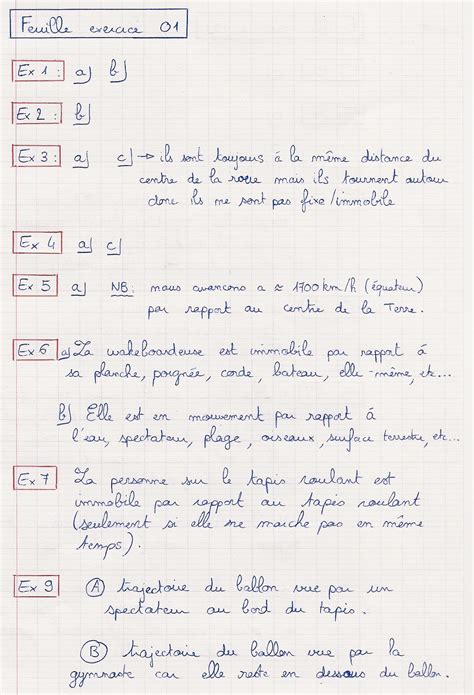 Feuille exercice 01
Ex 1 : a) b)
Ex 2 : b)
Ex 3 : a) c) → ils sont toujours à la même distance du
centre de la roue mais ils tournent autour
donc ils ne sont pas fixe/immobile
Ex 4 a) c)
Ex 5 a) NB : nous avancons a ≈ 1700 km/h (équateur)
par rapport au centre de la Terre.
Ex 6 a) La wakeboardeuse est immobile par rapport à
sa planche, poignée, corde, bateau, elle-même, etc...
b) Elle est en mouvement par rapport à
l'eau, spectateur, plage, oiseaux, surface terrestre, etc...
Ex 7 La personne sur le tapis roulant est
immobile par rapport au tapis roulant
(seulement si elle ne marche pas en même
temps).
Ex 9 A trajectoire du ballon vue par un
spectateur au bord du tapis.
B trajectoire du ballon vue par la
gymnaste car elle reste en dessous du ballon.